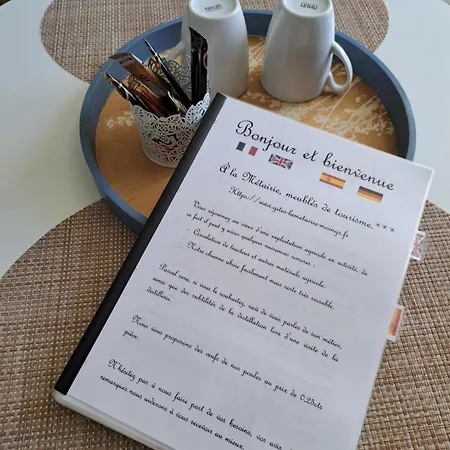 Bonjour et bienvenue
À la Métairie, meublés de tourisme. ***
Vous séjournez au cœur d'une exploitation agricole en activité, de
ce fait il peut y avoir quelques nuisances sonores :
- Circulation de tracteur et autres matériels agricole.
- Notre chienne aboie facilement mais reste très sociable.
Pascal sera, si vous le souhaitez, ravi de vous parler de son métier,
ainsi que des subtilités de la distillation lors d'une visite de la
distillerie.
Nous vous proposons des œufs de nos poules au prix de 0,25cts
pièce.
N'hésitez pas à nous faire part de vos besoins, vos avis
remarques nous aiderons à vous recevoir au mieux.